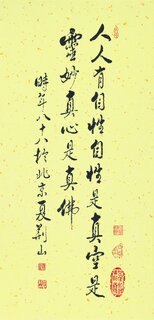 人人有自性自性是真空是
靈妙真心是真佛
時年八十八於北京夏荆山